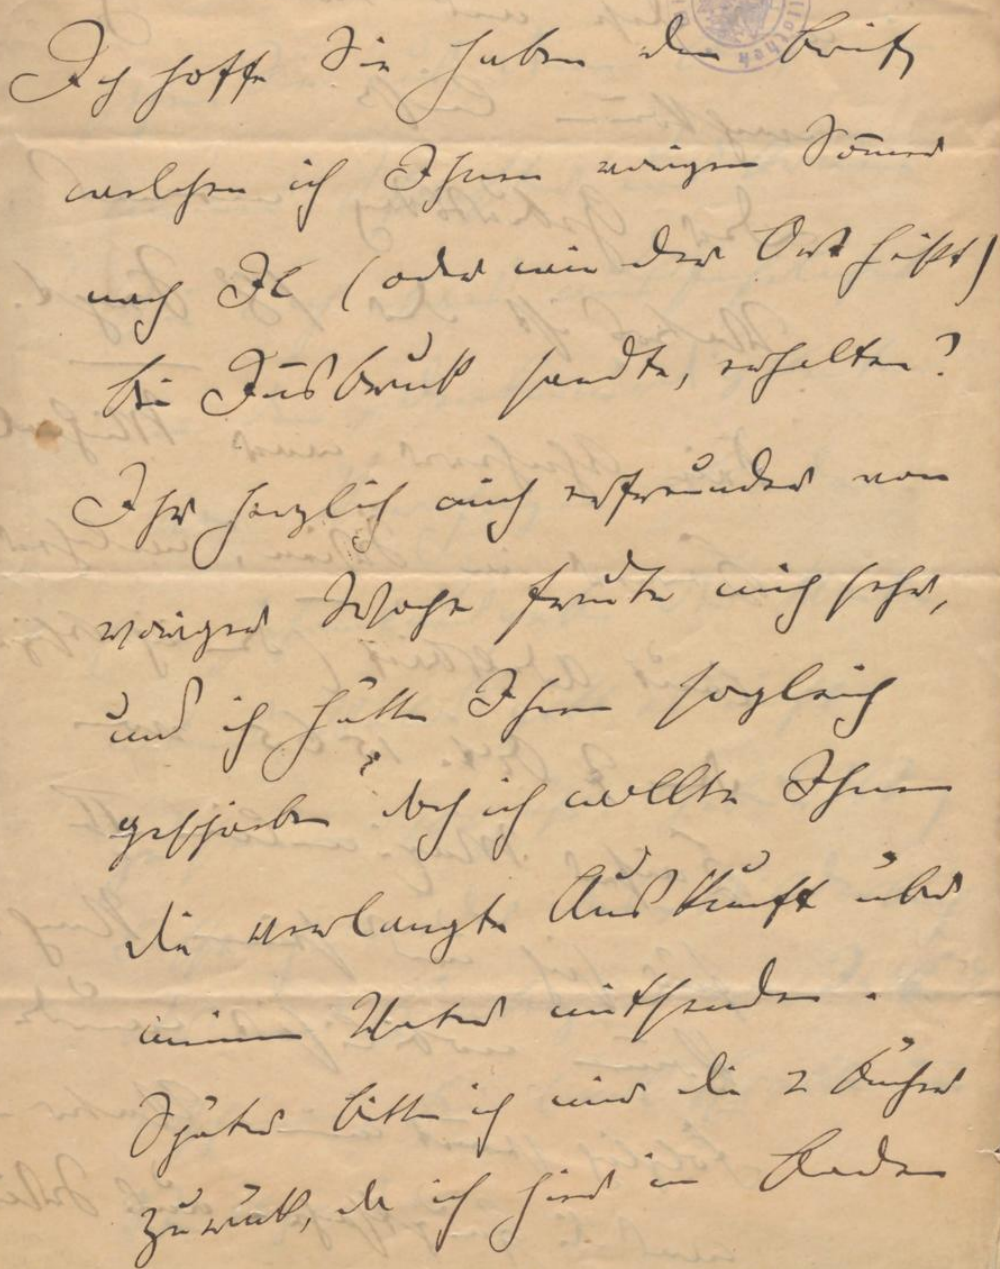 Ich hoffe Sie haben den Brief,
welchen ich Ihnen vorigen Som̅er
nach (oder wie der Ort heißt)
bei In̅sbruck sandte, erhalten?
Ihr herzlich auch von
voriger Woche freute mich sehr,
und ich hätte Ihnen sogleich
geschrieben doch ich wollte Ihnen
die verlangte Auskunft über
meinen Vater mitsenden.
Später bitte ich mir die 2 Bücher
zurück, da ich hier in Baden